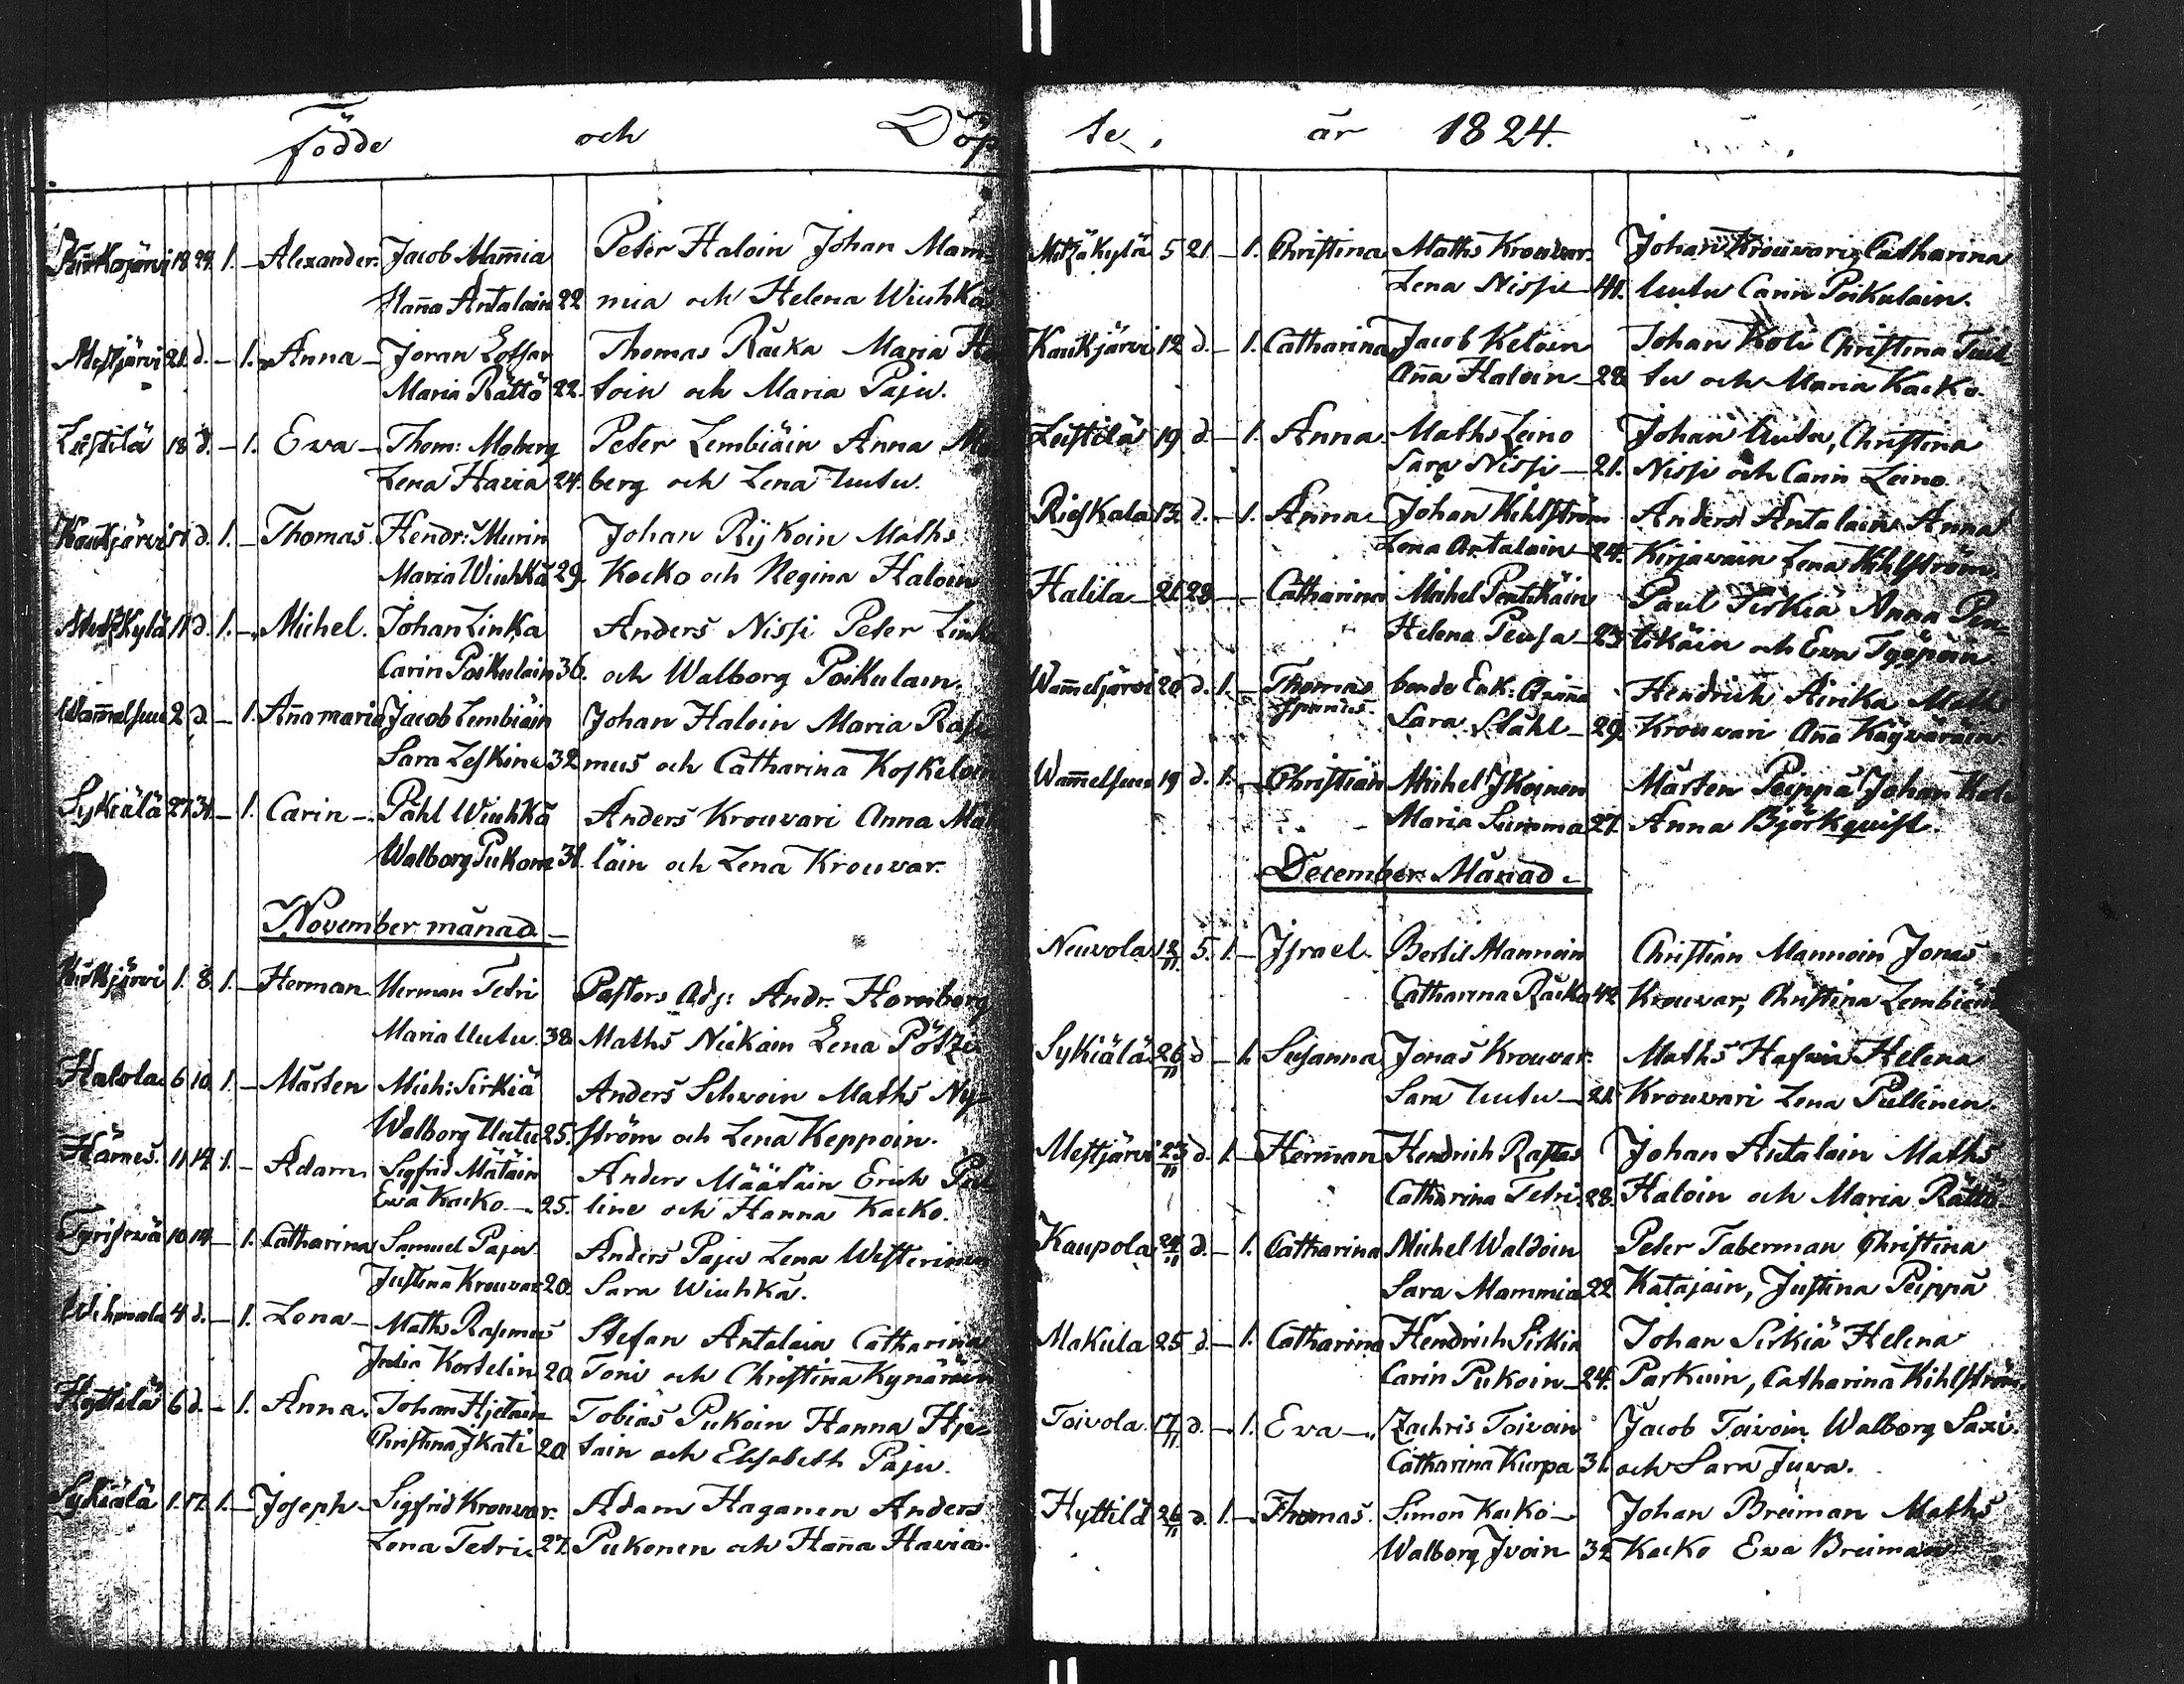 Födde och Döp
Kirkojärvi 18 24. 1. – Alexander. Jacob Mam̄ia Peter Haloin Johan Mam=
Han̄a Antalain 22 mia och Helena Wiuhka
Mestjärvi 21. d. – 1. Anna – Jöran
Thomas Räcka Maria
Maria Rättö 22. toin och Maria Paju.
Leistilä 18 d. – 1. Eva – Thom: Moberg Peter Lembiäin Anna Mo
Lena Havia 24. berg och Lena Uutu.
Kaukjärvi d. 1. – Thomas. Hendr: Murin Johan Rijkoin Maths
Maria Wiuhka 29. Kacko och Regina Haloin
d. 1. – Michel. Johan Linka Anders Nissi Peter Linka
Carin Poikulain 36. och Walborg Poikulain.
Wam̄elsuu 2 d. – 1. An̄a maria Jacob Lembiäin Johan Haloin Maria Rass
Sara Leskine 32 mus och Catharina Koskeloin
Sykiälä 27 31 – 1. Carin – Påhl Wiuhka Anders Krouvari Anna Mat
Walborg Pukone 31. läin och Lena Krouvar.
November månad. –
Kirkjärvi 1. 8. 1. – Herman Herman Tetri Pastors Adj: Andr. Hornborg
Maria Uutu. 38. Maths Nickain Lena Pötzi
Halola 6 10. 1. – Mårten Mich: Sirkiä Anders Ny=
Walborg Uutu 25. ström och Lena Keppoin.
Härnes. 11. 14. 1. – Adam Sigfrid Mätäin Anders Määtäin Erich
Eva Kacko – 25. line och Hanna Kacko.
Tyrisevä 10 14 – 1. Catharina Samuel Paju Anders Paju Lena Westerinen
Justina Krouvar 20. Sara Wiuhka.
Wihmala 4 d. – 1. Lena – Maths Rasmus Stefan Antalain Catharina
Kortelin 20. Toni och Christina Kynäräin
Hyttilä 6 d. – 1. Anna. Johan Hjetain Tobias Pukoin Hanna Hje=
Christina Ikati 20 tain och Elisabeth Paju.
Sykiälä 1. 17. 1. – Joseph – Sigfrid Krouvar. Adam Haganen Anders
Lena Tetri. 27. Pukonen och Han̄a Havia.
te, år 1824.
Metzäkylä 5 21. – 1. Christina Maths Krouvar. Johan Krouvari, Catharina
Lena Nissi – 41. Uutu Carin Poikulain.
Kaukjärvi 12 d. – 1. Catharina Jacob Keloin Johan Koli Christina Tuul=
An̄a Haloin – 28. tu och Maria Kacko.
Leistilä 19 d. – 1. Anna. Maths Leino Johan Uutu, Christina
Sara Nissi – 21. Nissi och Carin Leino.
Rieskala 13. d. – 1. Anna. Johan Kihlström Anders Antalain Anna
Lena Antalain – 24. Kirjavain Lena Kihlström.
Halila – 21. 28 – – Catharina Michel Pentikäin Paul Sirkiä Anna Pen=
Helena Peusa – 23. tikäin och Eva Työpöin
Wam̄eljärvi 20 d. 1. – Thomas bonde Enk:
Hendrich Airika Maths
Spurius. Sara Ståhl – 29. Krouvari An̄a Käyväräin.
Wam̄elsuu 19 d. 1. – Christian Michel Ikoinen Mårten Peippa Johan Koli
Maria Summa 27. Anna Björkquist.
December Månad. –
Neuvola 12/11. 5. 1. – Israel. Bertil Mannoin Christian Mannoin Jonas
Catharina Räcka 42 Krouvar, Christina Lembiäin
Sykiälä 26/11 d – 1. Susanna Jonas Krouvar. Maths Helena
Sara Uutu – 21. Krouvari Lena Pullinen.
Mestjärvi 23/11 d. 1. – Herman Hendrich Rastas Johan Antalain Maths
Catharina Tetri. 28. Haloin och Maria Rättö
Kaupola 24/11 d – 1. Catharina Michel Waldoin Peter Taberman Christina
Sara Mammia 22 Katajain, Justina Peippa
Makula 25 d – 1. Catharina Hendrich Sirkia Johan Sirkiä Helena
Carin Pukoin – 24. Parkuin, Catharina Kihlström.
Toivola 17/11. d. – 1. Eva – Zachris Toivoin Jacob Toivoin Walborg Saxi.
Catharina Kurpa 31. och Sara Juva.
Hyttilä 26/11 d. 1. – Thomas. Simon Kacko – Johan Breiman Maths
Walborg Ivoin 32 Kacko Eva Breiman